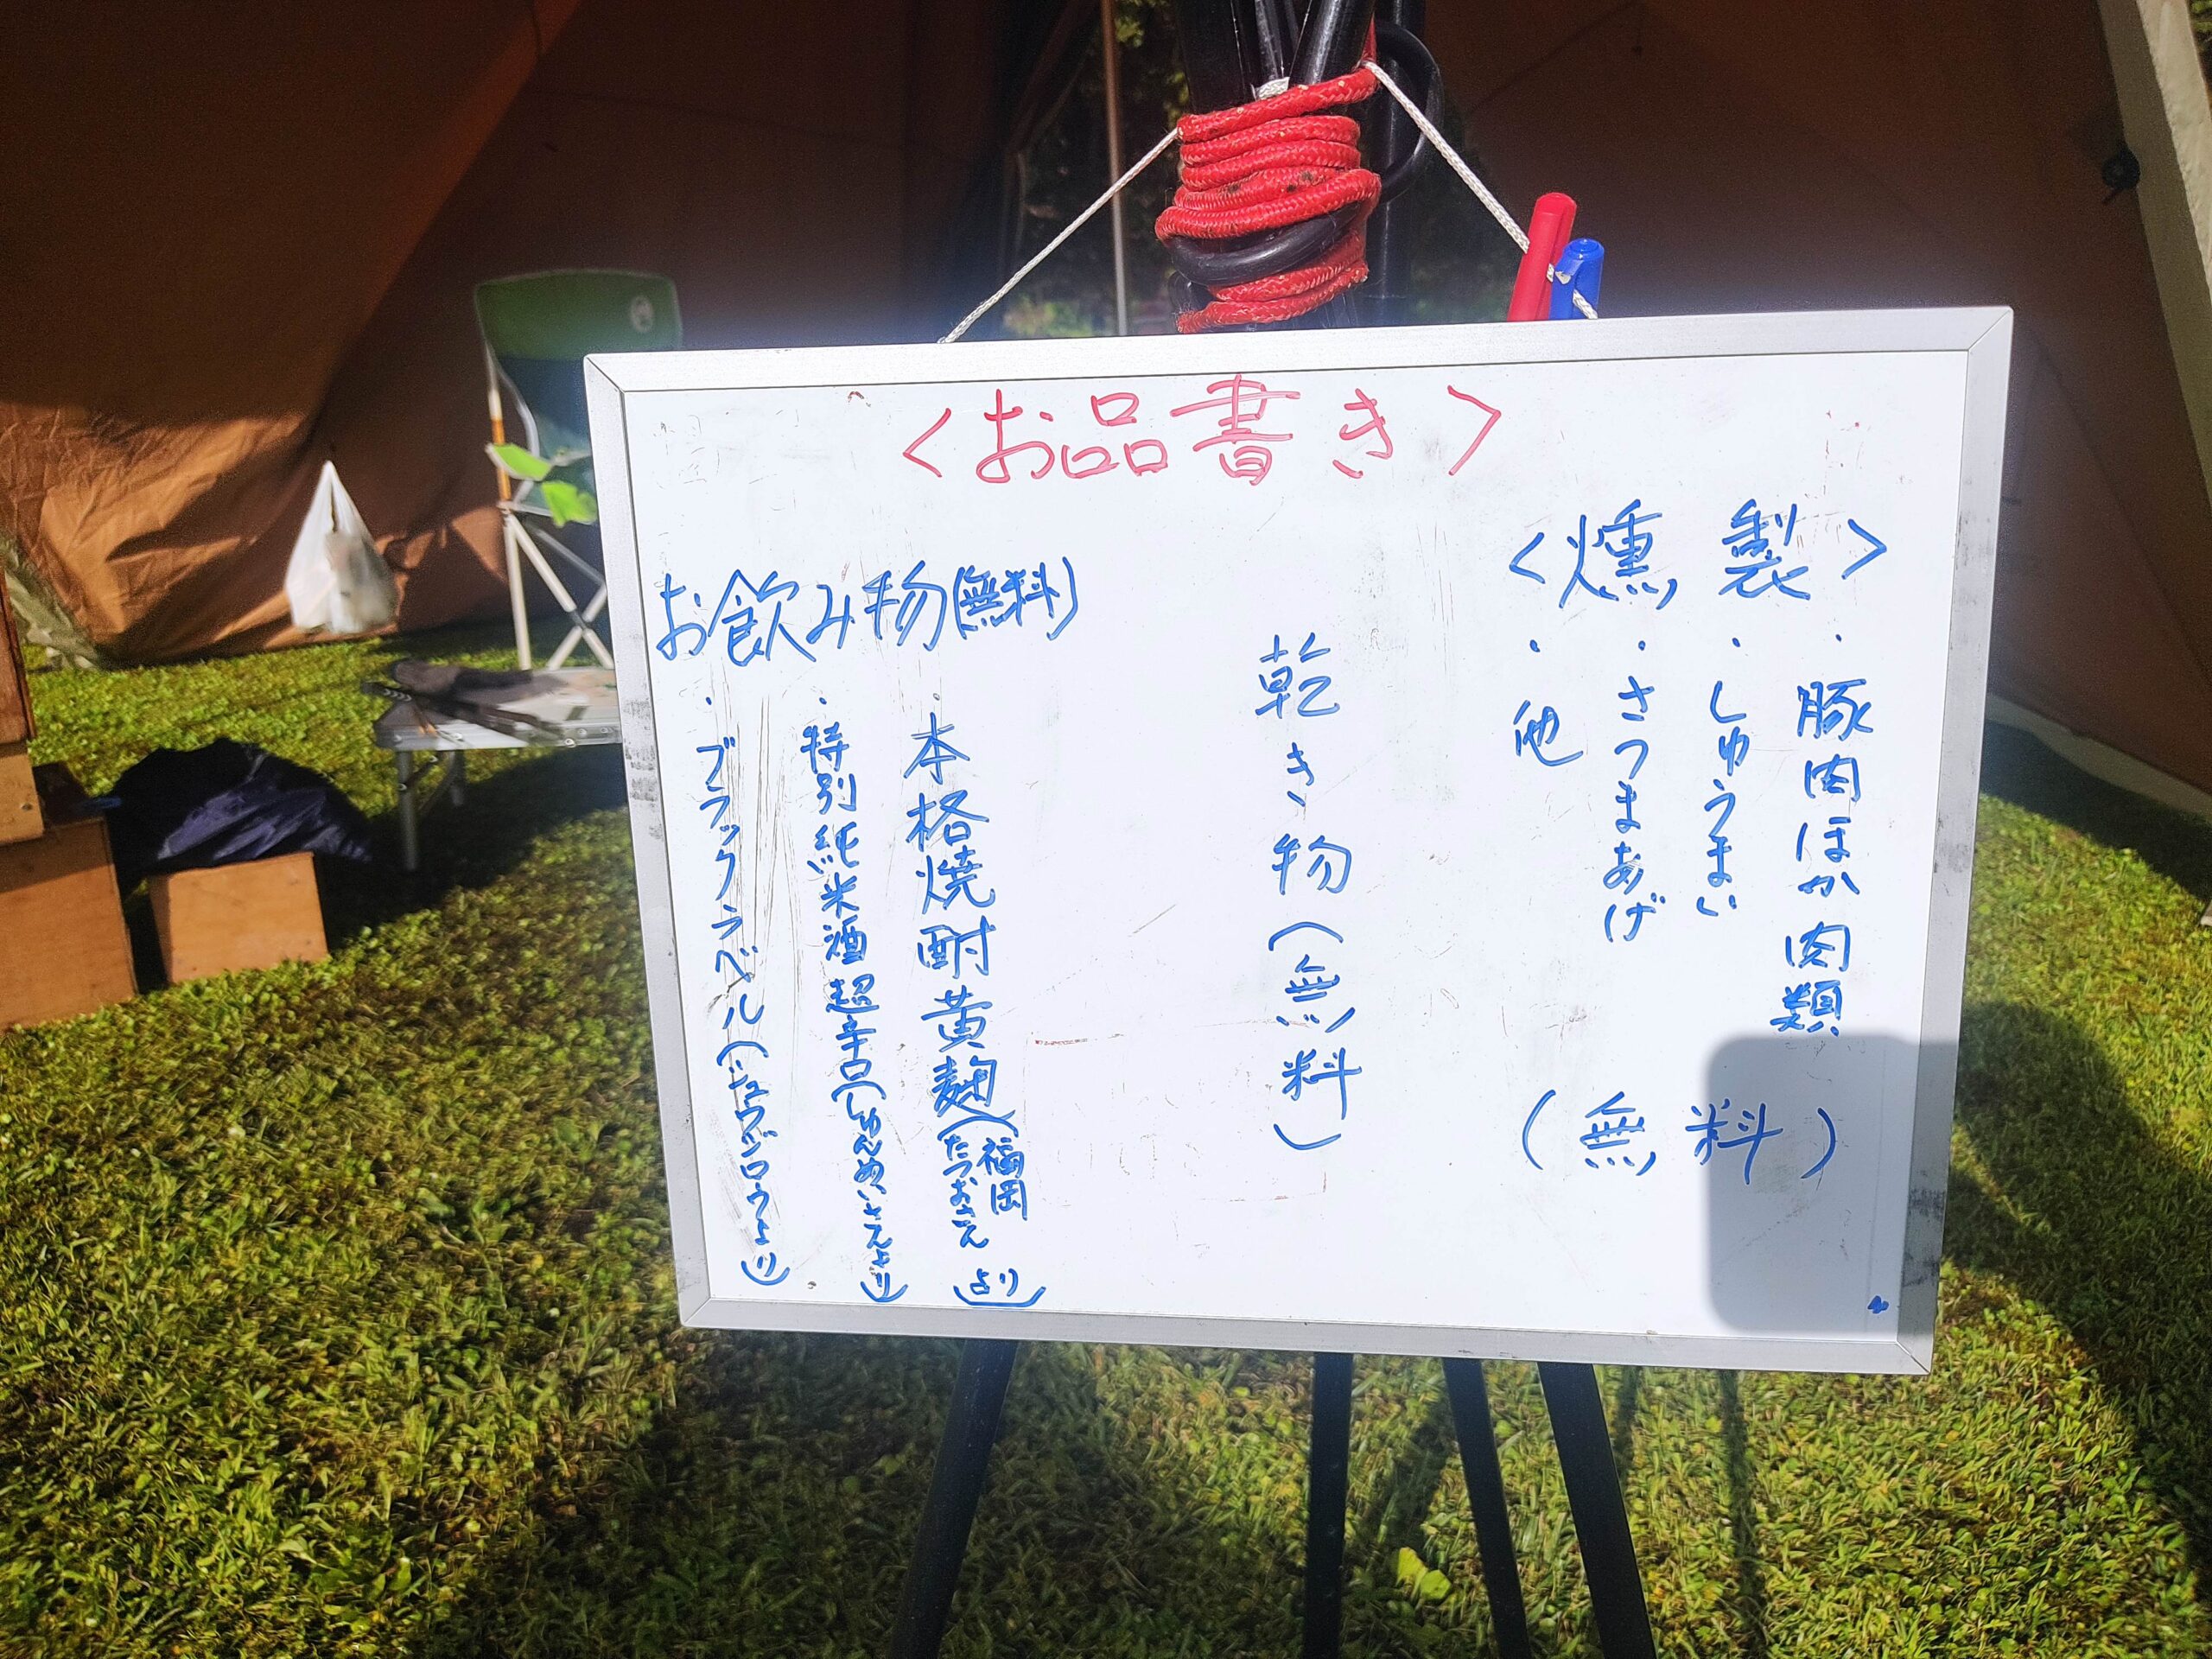 <お品書き>
<燻製>
・豚肉ほか肉類
・しゅうまい
・さつまあげ
・他
(無料)
乾き物(無料)
お飲み物(無料)
・本格焼酎黄麹(福岡たつおさんより)
・特別純米酒超辛口(しゅんめいさんより)
・ブラックラベル(シュウジロウより)